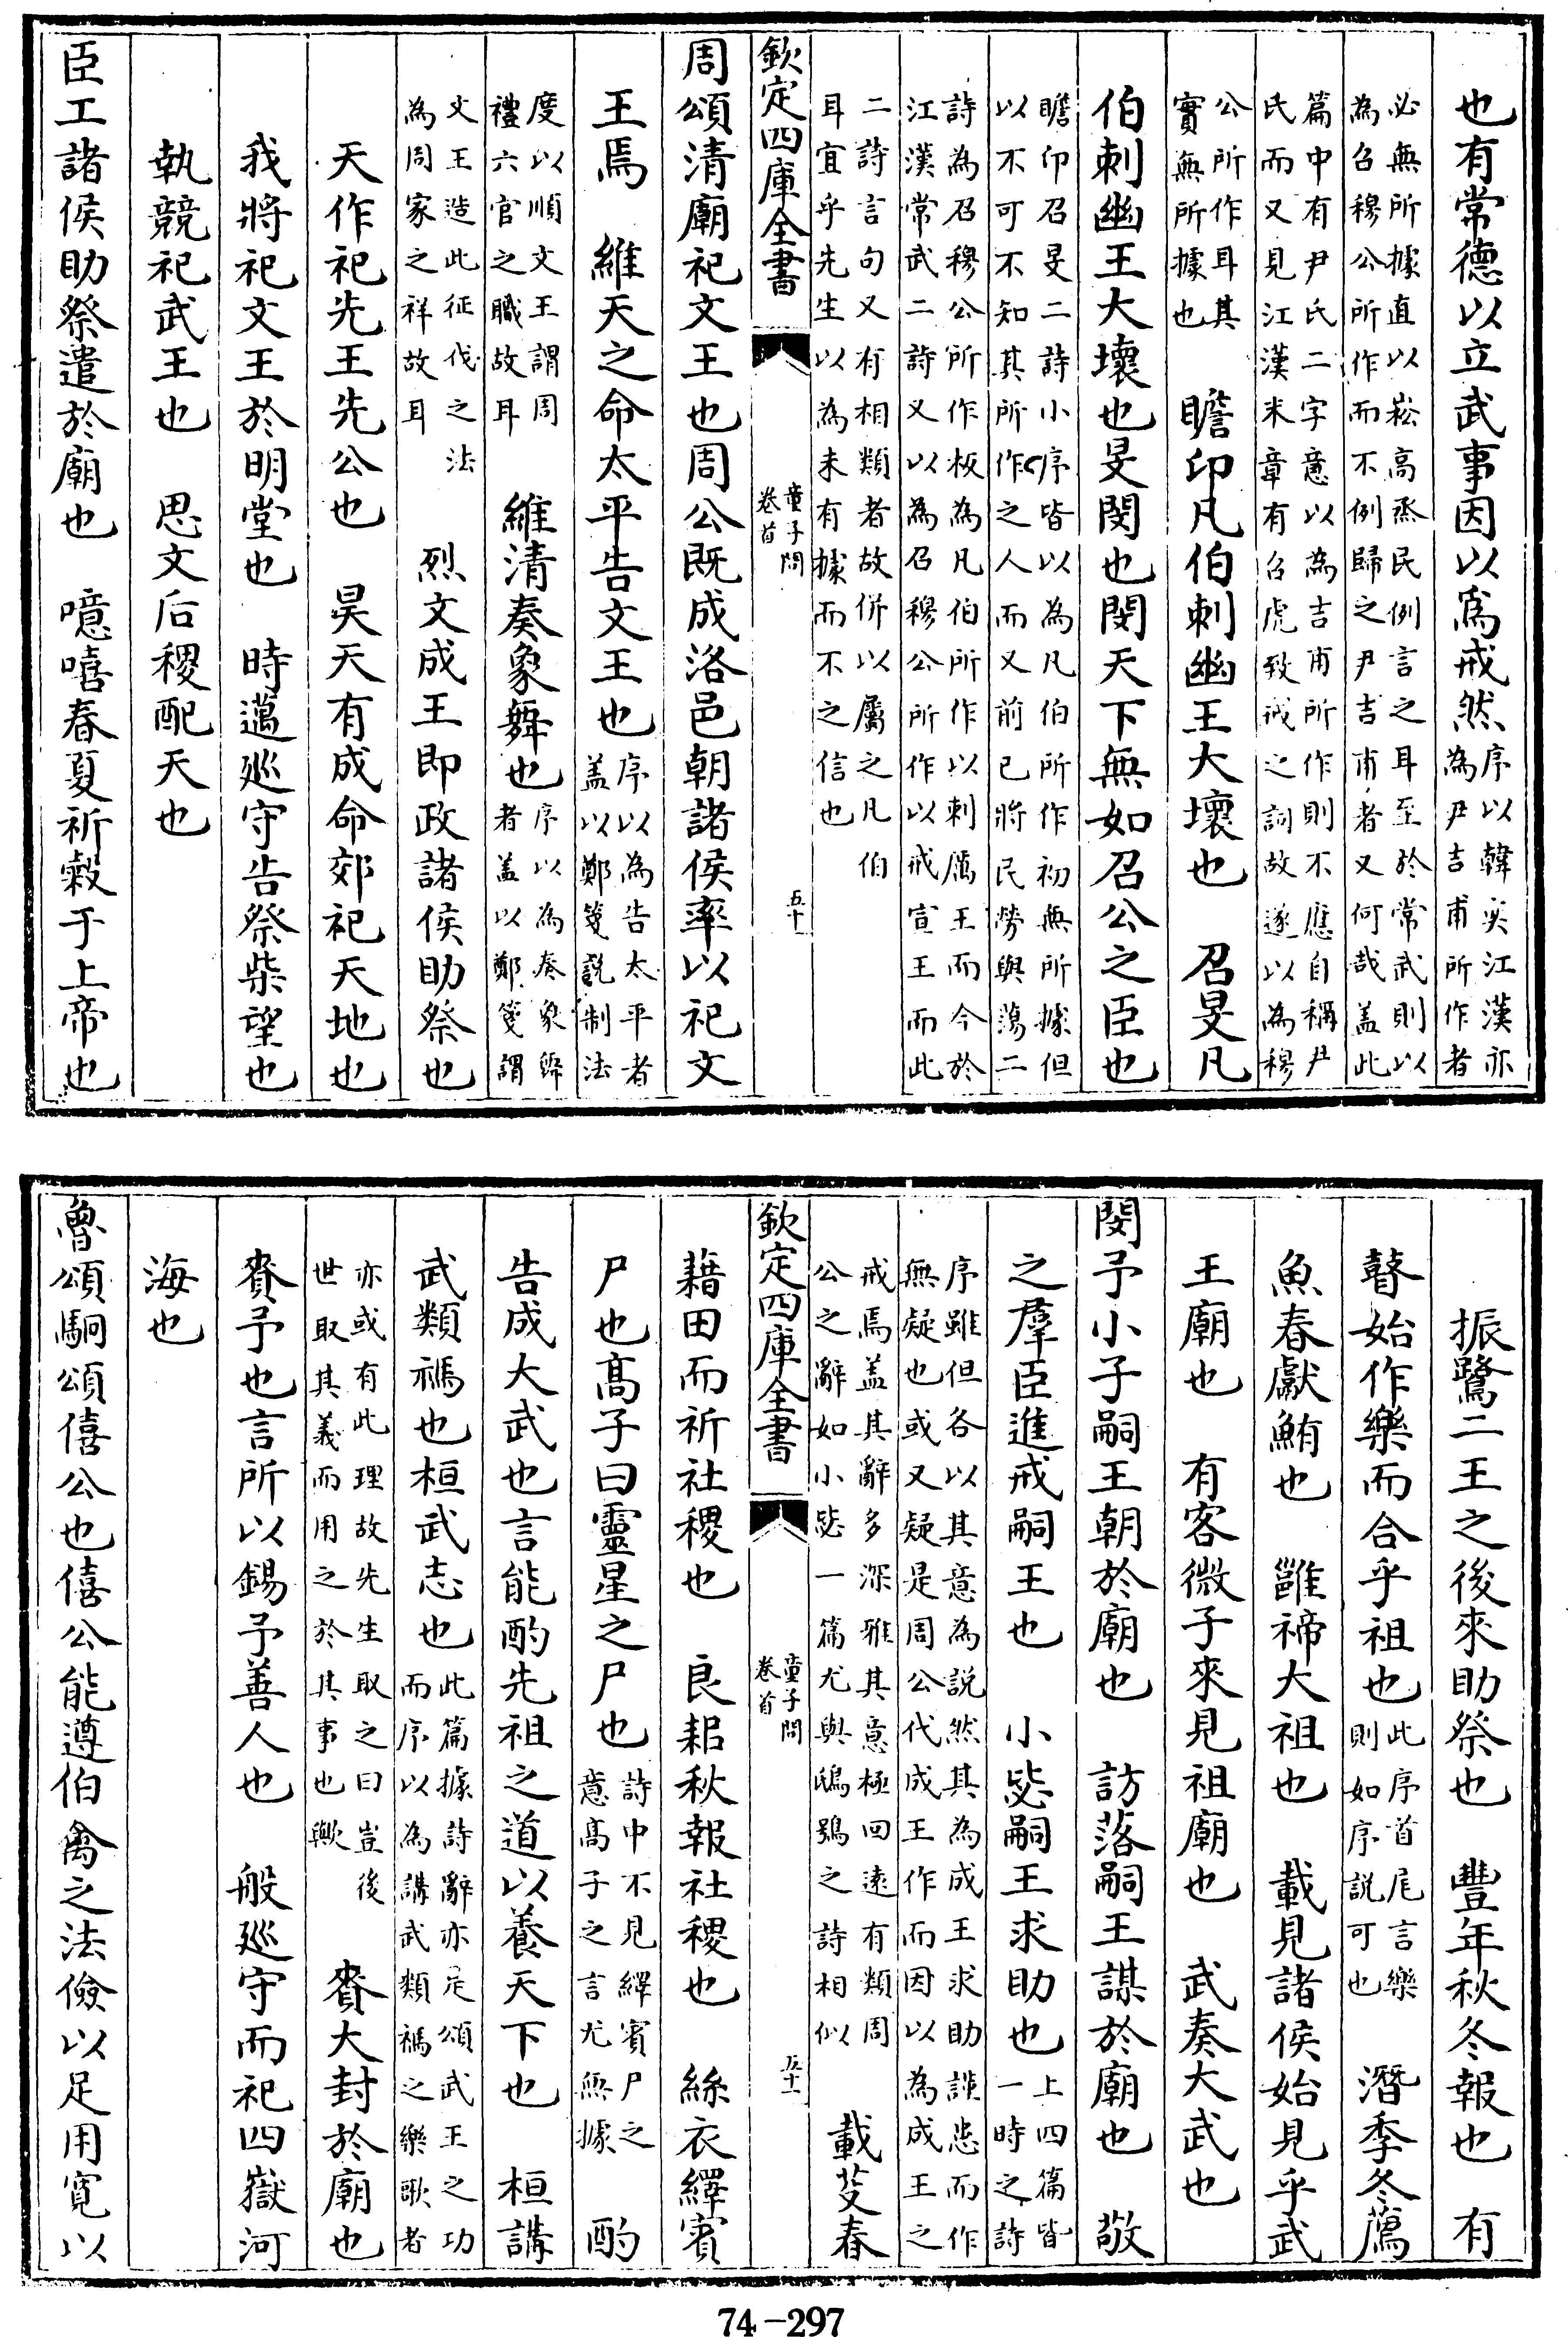 也有常德以立武事因以爲戒然序以韓奕江漢亦
為尹吉甫所作者
必無所據直以崧高烝民例言之耳至於常武則以
為召穆公所作而不例歸之尹吉甫者又何哉盖此
篇中有尹氏二字意以為吉甫所作則不應自稱尹
氏而又見江漢末章有召虎致戒之詞故遂以為穆
公所作耳其
實無所據也　瞻卬凡伯刺幽王大壞也　召旻凡
伯刺幽王大壞也旻閔也閔天下無如召公之臣也
瞻卬召旻二詩小序皆以為凡伯所作初無所據但
以不可不知其所作之人而又前已將民勞與蕩二
詩為召穆公所作板為凡伯所作以刺厲王而今於
江漢常武二詩又以為召穆公所作以戒宣王而此
二詩言句又有相類者故併以屬之凡伯
耳宜乎先生以為未有據而不之信也
欽定四庫全書　童子問
卷首　五十
周頌清廟祀文王也周公既成洛邑朝諸侯率以祀文
王焉　維天之命太平告文王也序以為告太平者
盖以鄭箋説制法
度以順文王謂周
禮六官之職故耳　維清奏象舞也序以為奏象舞
者盖以鄭箋謂
文王造此征伐之法
為周家之祥故耳　烈文成王即政諸侯助祭也
天作祀先王先公也　昊天有成命郊祀天地也
我將祀文王於明堂也　時邁巡守告祭柴望也
執競祀武王也　思文后稷配天也
臣工諸侯助祭遣於廟也　噫嘻春夏祈穀于上帝也
振鷺二王之後來助祭也　豐年秋冬報也　有
瞽始作樂而合乎祖也此序首尾言樂
則如序説可也　潛季冬薦
魚春獻鮪也　雝禘大祖也　載見諸侯始見乎武
王廟也　有客微子來見祖廟也　武奏大武也
閔予小子嗣王朝於廟也　訪落嗣王謀於廟也　敬
之羣臣進戒嗣王也　小毖嗣王求助也上四篇皆
一時之詩
序雖但各以其意為説然其為成王求助謹毖而作
無疑也或又疑是周公代成王作而因以為成王之
戒焉盖其辭多深雅其意極回遠有類周
公之辭如小毖一篇尤與鴟鴞之詩相似　載芟春
欽定四庫全書　童子問
卷首　五十一
藉田而祈社稷也　良耜秋報社稷也　絲衣繹賓
尸也髙子曰靈星之尸也詩中不見繹賓尸之
意髙子之言尤無據　酌
告成大武也言能酌先祖之道以養天下也　桓講
武類禡也桓武志也此篇據詩辭亦是頌武王之功
而序以為講武類禡之樂歌者
亦或有此理故先生取之曰豈後
世取其義而用之於其事也歟　賚大封於廟也
賚予也言所以錫予善人也　般巡守而祀四嶽河
海也
魯頌駉頌僖公也僖公能遵伯禽之法儉以足用寬以
74-297